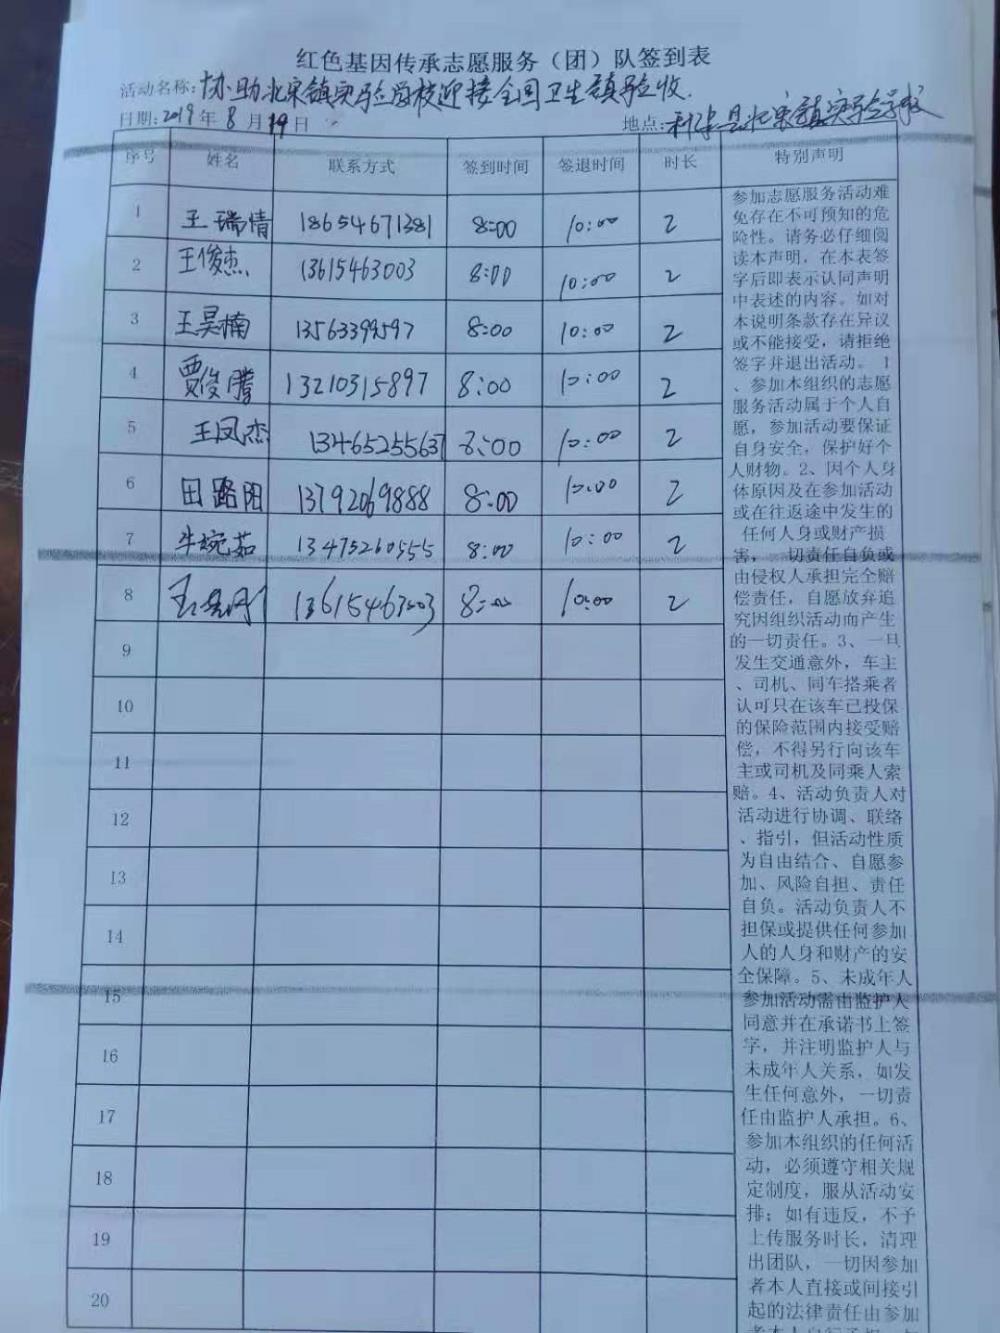 红色基因传承志愿服务（团）队签到表
活动名称：协助北宋镇实验学校迎接全国卫生镇验收.
日期：2019年8月19日 地点：利津县北宋镇实验学校
序号 姓名 联系方式 签到时间 签退时间 时长 特别声明
1 王瑞情 18654671381 8:00 10:00 2
2 王俊杰 13615463003 8:00 10:00 2
3 王昊楠 13563399597 8:00 10:00 2
4 贾俊腾 13210315897 8:00 10:00 2
5 王凤杰 13465255637 8:00 10:00 2
6 田路阳 13792069888 8:00 10:00 2
7 牛婉茹 13475260555 8:00 10:00 2
8 13615463003 8:00 10:00 2
9
10
11
12
13
14
15
16
17
18
19
20
参加志愿服务活动难
免存在不可预知的危
险性。请务必仔细阅
读本声明，在本表签
字后即表示认同声明
中表述的内容。如对
本说明条款存在异议
或不能接受，请拒绝
签字并退出活动。 1
、参加本组织的志愿
服务活动属于个人自
愿，参加活动要保证
自身安全，保护好个
人财物。2、因个人身
体原因及在参加活动
或在往返途中发生的
任何人身或财产损
害，一切责任自负或
由侵权人承担完全赔
偿责任，自愿放弃追
究因组织活动而产生
的一切责任。3、一旦
发生交通意外，车主
、司机、同车搭乘者
认可只在该车已投保
的保险范围内接受赔
偿，不得另行向该车
主或司机及同乘人索
赔。4、活动负责人对
活动进行协调、联络
、指引，但活动性质
为自由结合、自愿参
加、风险自担、责任
自负。活动负责人不
担保或提供任何参加
人的人身和财产的安
全保障。5、未成年人
参加活动需由监护人
同意并在承诺书上签
字，并注明监护人与
未成年人关系，如发
生任何意外，一切责
任由监护人承担。6、
参加本组织的任何活
动，必须遵守相关规
定制度，服从活动安
排；如有违反，不予
上传服务时长，清理
出团队，一切因参加
者本人直接或间接引
起的法律责任由参加